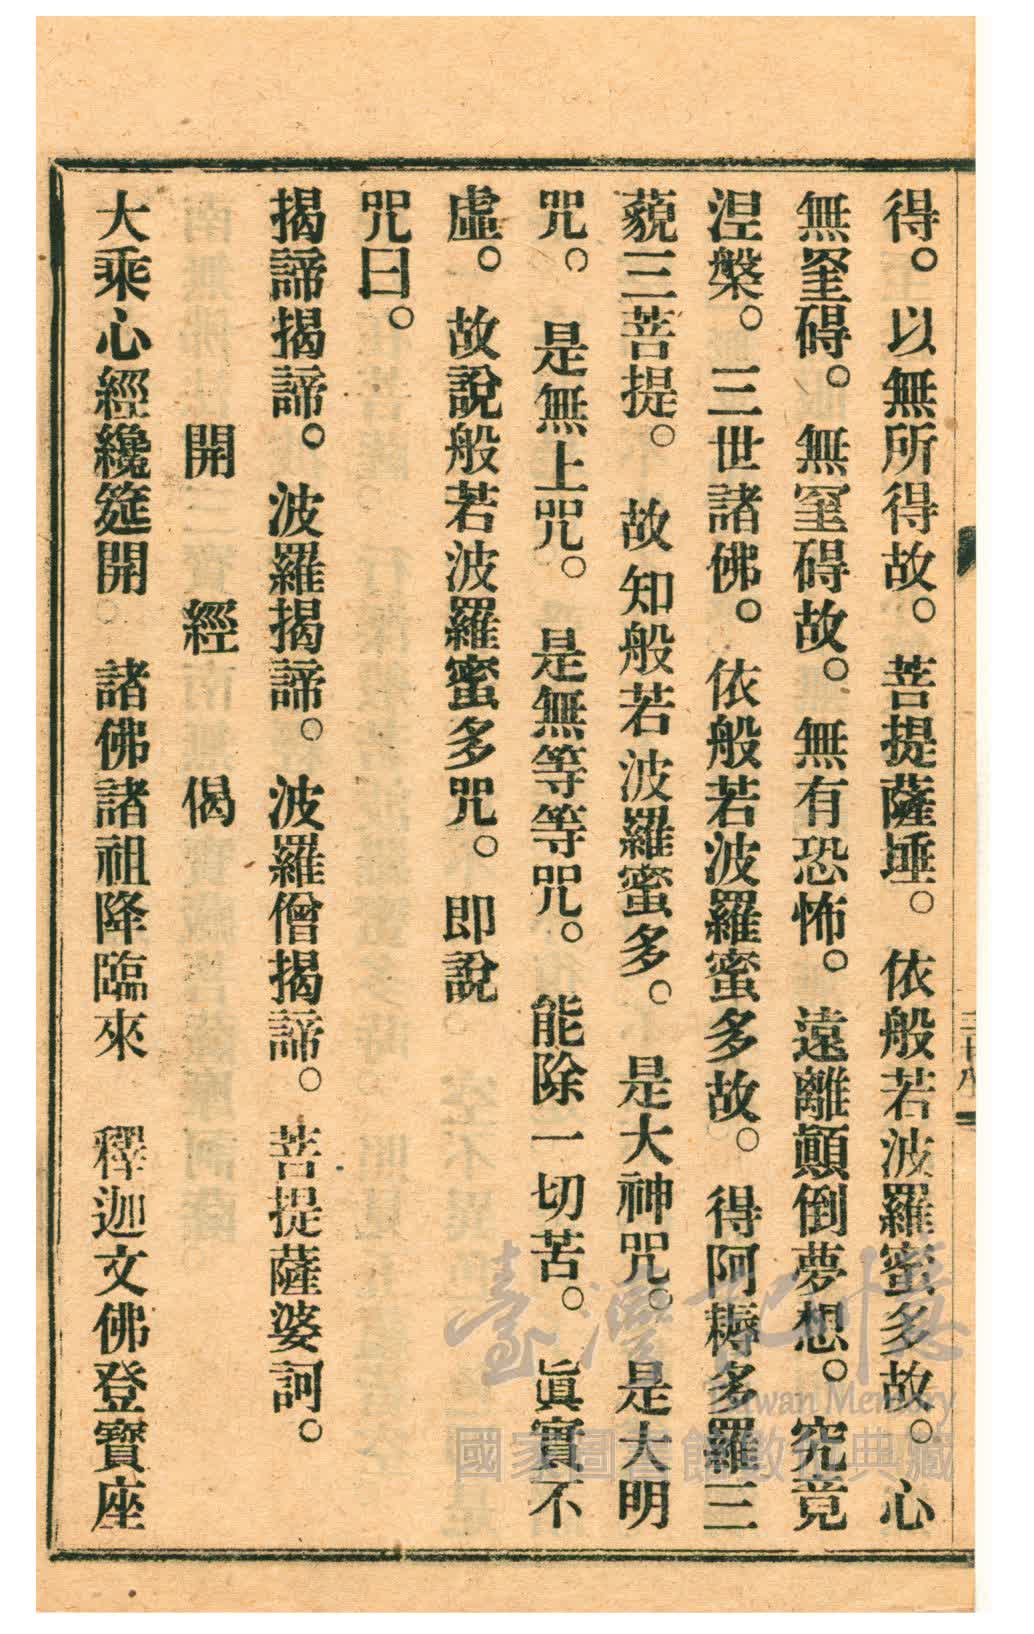 得。以無所得故。菩提薩埵。依般若波羅蜜多故。心
無罣碍。無罣碍故。無有恐怖。遠離顚倒夢想。究竟
涅槃。三世諸佛。依般若波羅蜜多故。得阿耨多羅三
藐三菩提。故知般若波羅蜜多。是大神咒。是大明
咒。是無上咒。是無等等咒。能除一切苦。眞實不
虛。故說般若波羅蜜多咒。即說
咒曰。
揭諦揭諦。波羅揭諦。波羅僧揭諦。菩提薩婆訶。
開經偈
大乘心經纔筵開。諸佛諸祖降臨來 釋迦文佛登寶座
臺灣記憶
Taiwan Memory
國家圖書館數位典藏